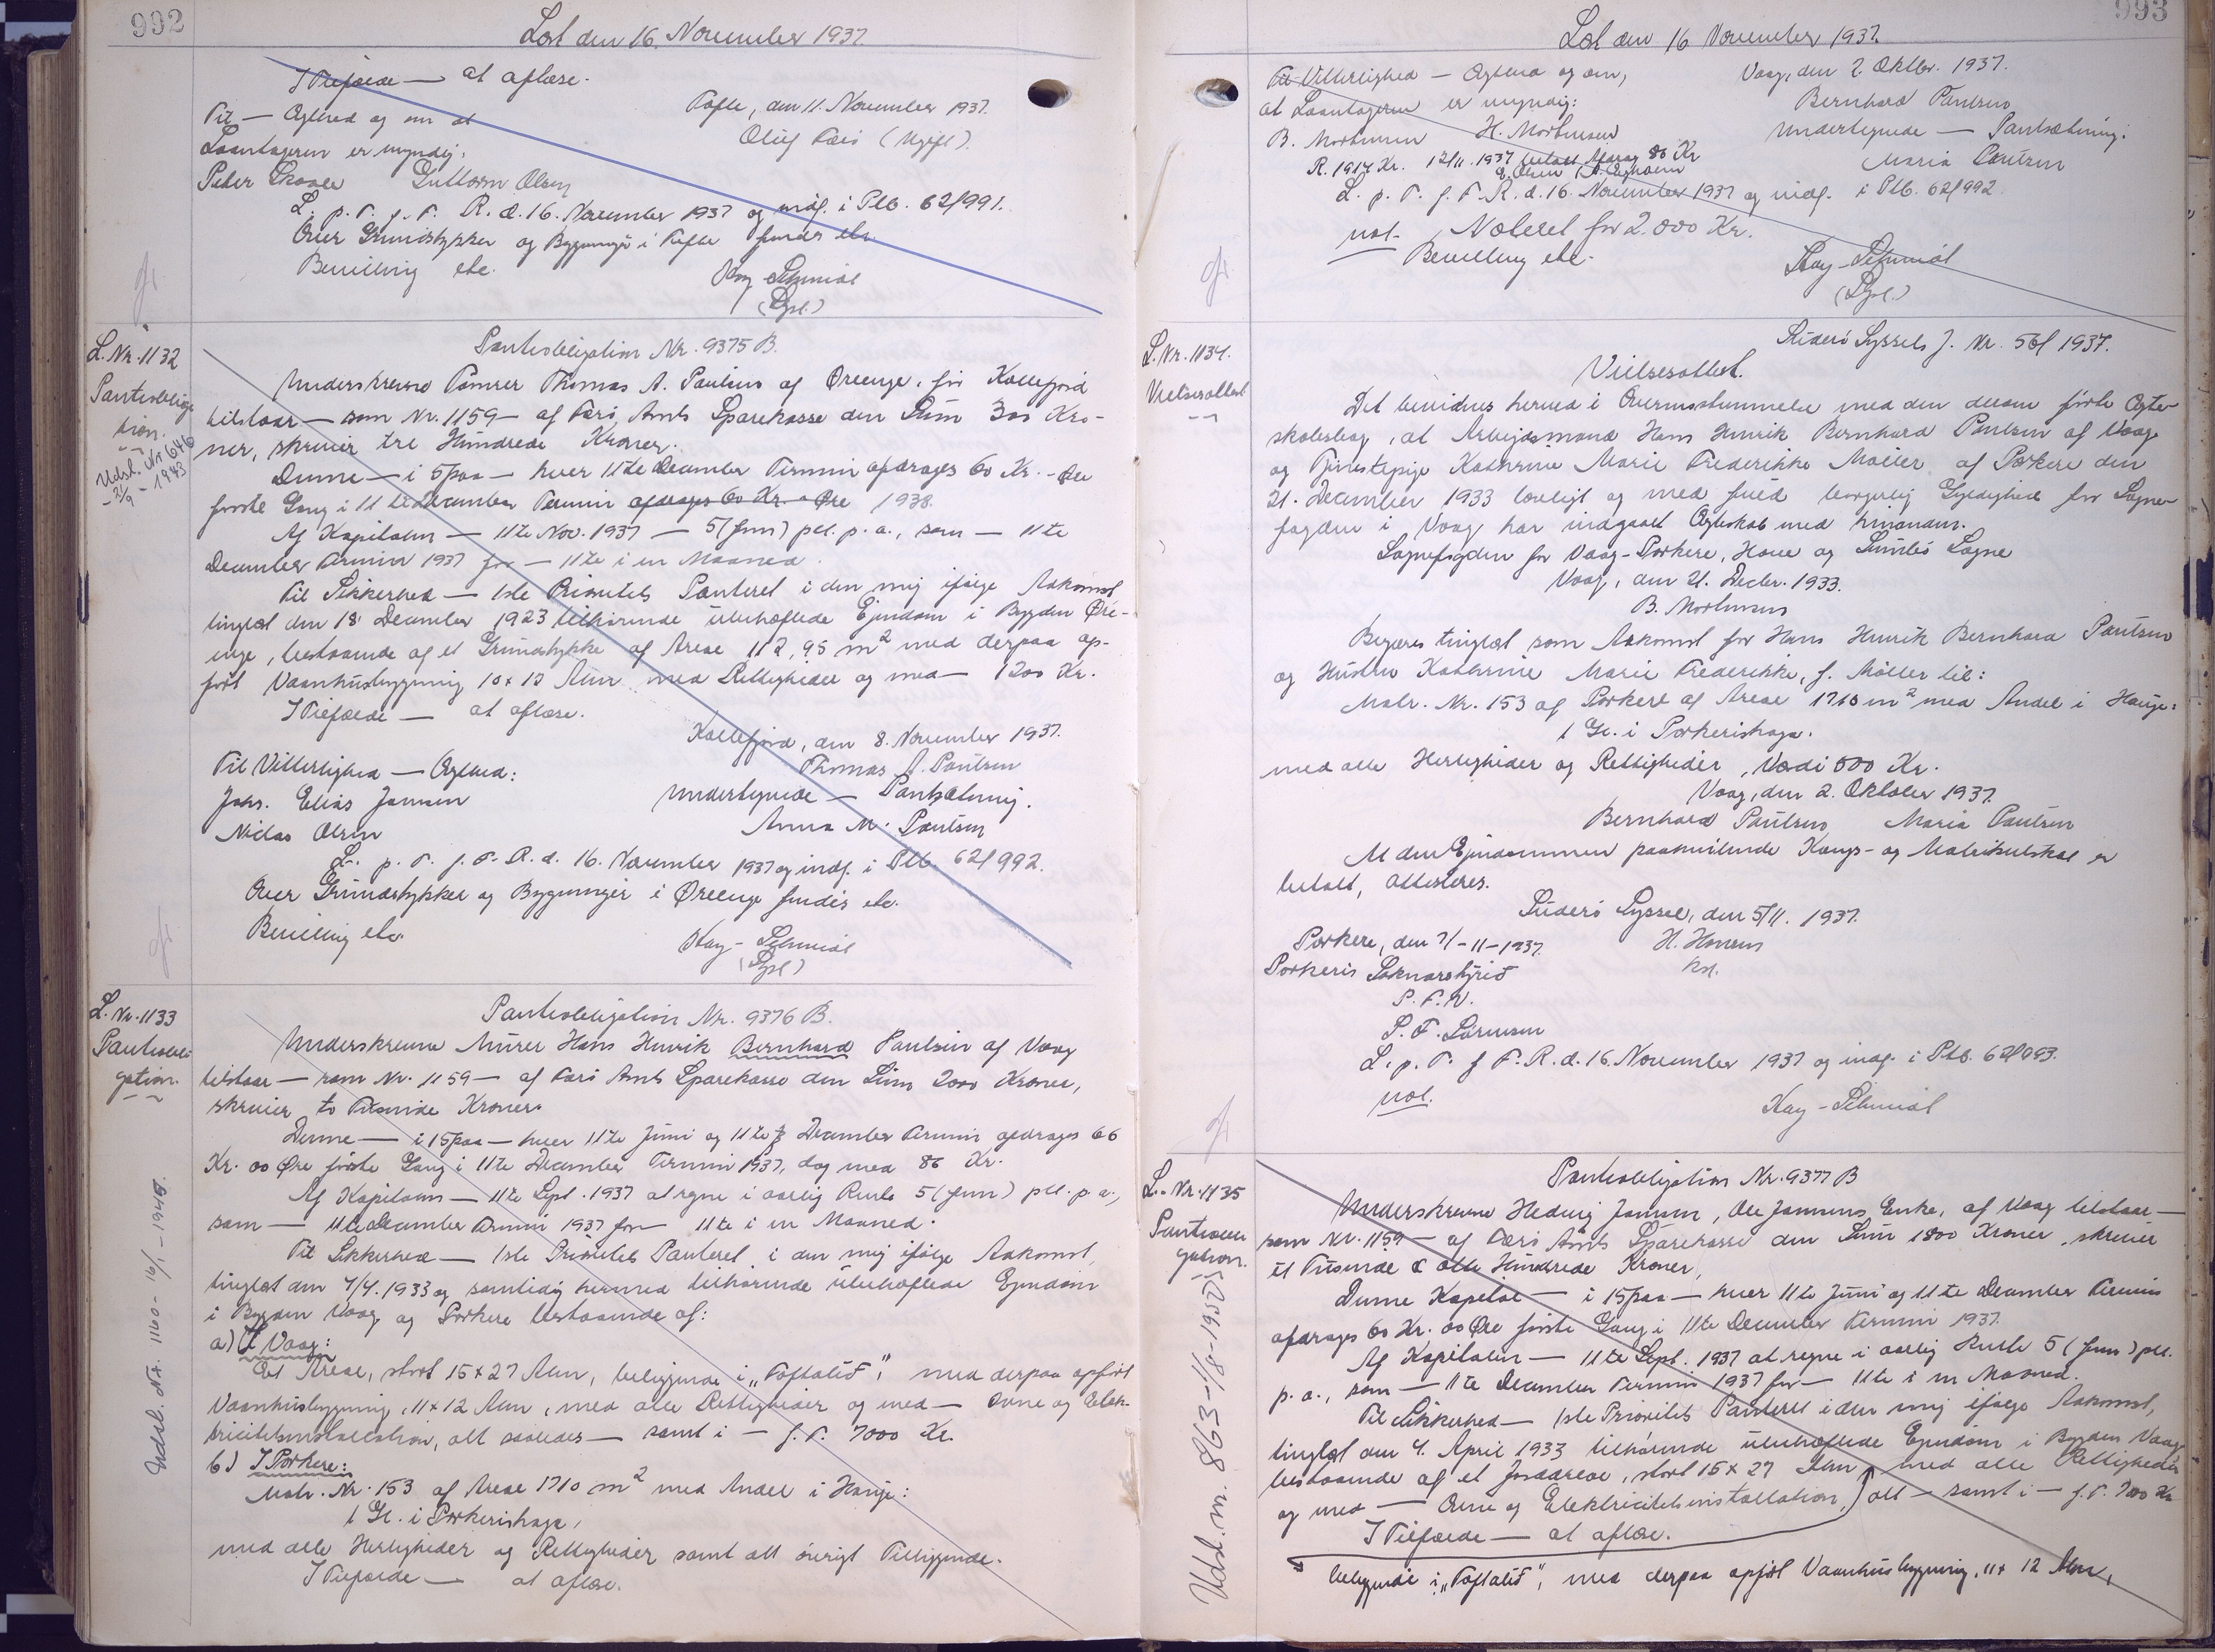 992
Læst den 16. November 1937.
I Tilfælde — at aflæse.
Tofte, den 11. November 1937.
Til — Ægthed og om at
Oluf (Ugift).
Laantageren er myndig:
Peder Guttorm Olsen
L. p. T. f. F. R. d. 16. November 1937 og indf. i Ptb. 62/991.
Over Grundstykker og Bygninger i Tofte findes etc.
Bevilling etc.
Kay-Schmidt
(Dpt.)
L. Nr. 1132
Panteobliga-
tion.
Udsl. Nr. 646
- 21/9 - 1943
Panteobligation Nr. 9375 B.
Underskrevne Tømrer Thomas A. Paulsen af Øreenge, for Kollefjord
tilstaar — som Nr. 1159 — af Færø Amts Sparekasse den Sum 300 Kro-
ner, skriver tre Hundrede Kroner.
Denne — i 5 paa — hver 11te December Termin afdrages 60 Kr. - Øre
første Gang i 11te December Termin afdrages 60 Kr. - Øre 1938.
Af Kapitalen — 11te Nov. 1937 — 5 (fem) pct. p. a., som — 11te
December Termin 1937 for — 11te i en Maaned.
Til Sikkerhed — 1ste Prioritets Panteret i den mig ifølge Adkomst
tinglæst den 18 December 1923 tilhørende ubehæftede Ejendom i Bygden Øre-
enge, bestaaende af et Grundstykke af Areal 112,95 m² med derpaa op-
ført Vaanhusbygning 10 x 13 Alen med Rettigheder og med — 1200 Kr.
I Tilfælde — at aflæse.
Kollefjord, den 8. November 1937.
Til Vitterlighed — Ægthed:
Thomas A. Paulsen
Johs. Elias Jensen
Undertegnede — Pantsætning.
Niclas Olsen
Anna M. Paulsen
L. p. T. f. F. R. d. 16. November 1937 og indf. i Ptb. 62/992.
Over Grundstykker og Bygninger i Øreenge findes etc.
Bevilling etc.
Kay-Schmidt
(Dpt.)
L. Nr. 1133
Panteobli-
gation.
Udsl. Nr. 1160 - 16/1 - 1948.
Panteobligation Nr. 9376 B.
Underskrevne Murer Hans Henrik Bernhard Paulsen af Vaag
tilstaar — som Nr. 1159 — af Færø Amts Sparekasse den Sum 2000 Kroner,
skriver to Tusinde Kroner.
Denne — i 15 paa — hver 11te Juni og 11te December Termin afdrages 66
Kr. 00 Øre første Gang i 11te December Termin 1937, dog med 86 Kr.
Af Kapitalen — 11te Sept. 1937 at regne i aarlig Rente 5 (fem) pct. p. a.,
som — 11te December Termin 1937 for — 11te i en Maaned.
Til Sikkerhed — 1ste Prioritets Panteret i den mig ifølge Adkomst,
tinglæst den 4/4. 1933 og samtidig hermed tilhørende ubehæftede Ejendom
i Bygden Vaag og Porkere bestaaende af:
a) I Vaag:
Et Areal, stort 15 x 27 Alen, beliggende i „Toftalið“, med derpaa opført
Vaanhusbygning, 11 x 12 Alen, med alle Rettigheder og med — Ovne og Elek-
tricitetsinstallation, alt saaledes — samt i — f. T. 7000 Kr.
b) I Porkere:
Matr. Nr. 153 af Areal 1710 m² med Andel i Hauge:
1 Gl. i Porkerishaga,
med alle Herligheder og Rettigheder samt alt øvrigt Tilliggende.
I Tilfælde — at aflæse.
993
Læst den 16 November 1937.
Til Vitterlighed — Ægthed og om,
Vaag, den 2. Oktbr. 1937.
at Laantageren er myndig:
Bernhard Paulsen
B. Mortensen H. Mortensen
Undertegnede — Pantsætning.
R. 1914 Kr. 12/11. 1937 betalt Afdrag 86 Kr
Maria Paulsen
L. p. T. f. F. R. d. 16. November 1937 og indf. i Ptb. 62/992
not. Noteret for 2.000 Kr.
Bevilling etc.
Kay-Schmidt
(Dpt.)
L. Nr. 1134.
Vielsesattest
Suderø Syssels J. Nr. 561 1937.
Vielsesattest.
Det bevidnes herved i Overensstemmelse med den derom førte Ægte-
skabsbog, at Arbejdsmand Hans Henrik Bernhard Paulsen af Vaag
og Tjenestepige Kathrine Marie Frederikke Møller af Porkere den
21. December 1933 lovligt og med fuld borgerlig Gyldighed for Sogne-
fogden i Vaag har indgaaet Ægteskab med hinanden.
Sognefogden for Vaag-Porkere, Hove og Sumbø Sogne
Vaag, den 21. Decbr. 1933.
B. Mortensen
Begæres tinglæst som Adkomst for Hans Henrik Bernhard Paulsen
og Hustru Kathrine Marie Frederikke, f. Møller til:
Matr. Nr. 153 af Porkere af Areal 1710 m² med Andel i Hauge:
1 Gl. i Porkerishaga.
med alle Herligheder og Rettigheder, Værdi 500 Kr.
Vaag, den 2. Oktober 1937.
Bernhard Paulsen Maria Paulsen
At den Ejendommen paahvilende Kongs- og Matrikulskat er
betalt, attesteres.
Suderø Syssel, den 5/11. 1937.
Porkere, den 7/-11-1937.
H. Hansen
Porkeris Soknarstýrið
kst.
P. F. V.
P. F. Sørensen
L. p. T. f F. R. d. 16. November 1937 og indf. i Ptb. 62/993.
not.
Kay-Schmidt
L. Nr. 1135
Panteobli-
gation.
Udsl. nr. 863 - 1/8 - 1950
Panteobligation Nr. 9377 B
Underskrevne Hedvig Jensen, Ole Jensens Enke, af Vaag tilstaar —
som Nr. 1159 — af Færø Amts Sparekasse den Sum 1800 Kroner, skriver
et Tusinde & otte Hundrede Kroner,
Denne Kapital — i 15 paa — hver 11te Juni og 11te December Termin
afdrages 60 Kr. 00 Øre første Gang i 11te December Termin 1937.
Af Kapitalen — 11te Sept. 1937 at regne i aarlig Rente 5 (fem) pct.
p. a., som — 11te December Termin 1937 for — 11te i en Maaned.
Til Sikkerhed — 1ste Prioritets Panteret i den mig ifølge Adkomst,
tinglæst den 4. April 1933 tilhørende ubehæftede Ejendom i Bygden Vaag
bestaaende af et Jordareal, stort 15 x 27 Alen, med alle Rettigheder
og med — Ovne og Elektricitetsinstallation, alt — samt i — f. T. 7000 Kr
I Tilfælde — at aflæse.
beliggende i „Toftalið“, med derpaa opført Vaanhusbygning, 11 x 12 Alen,